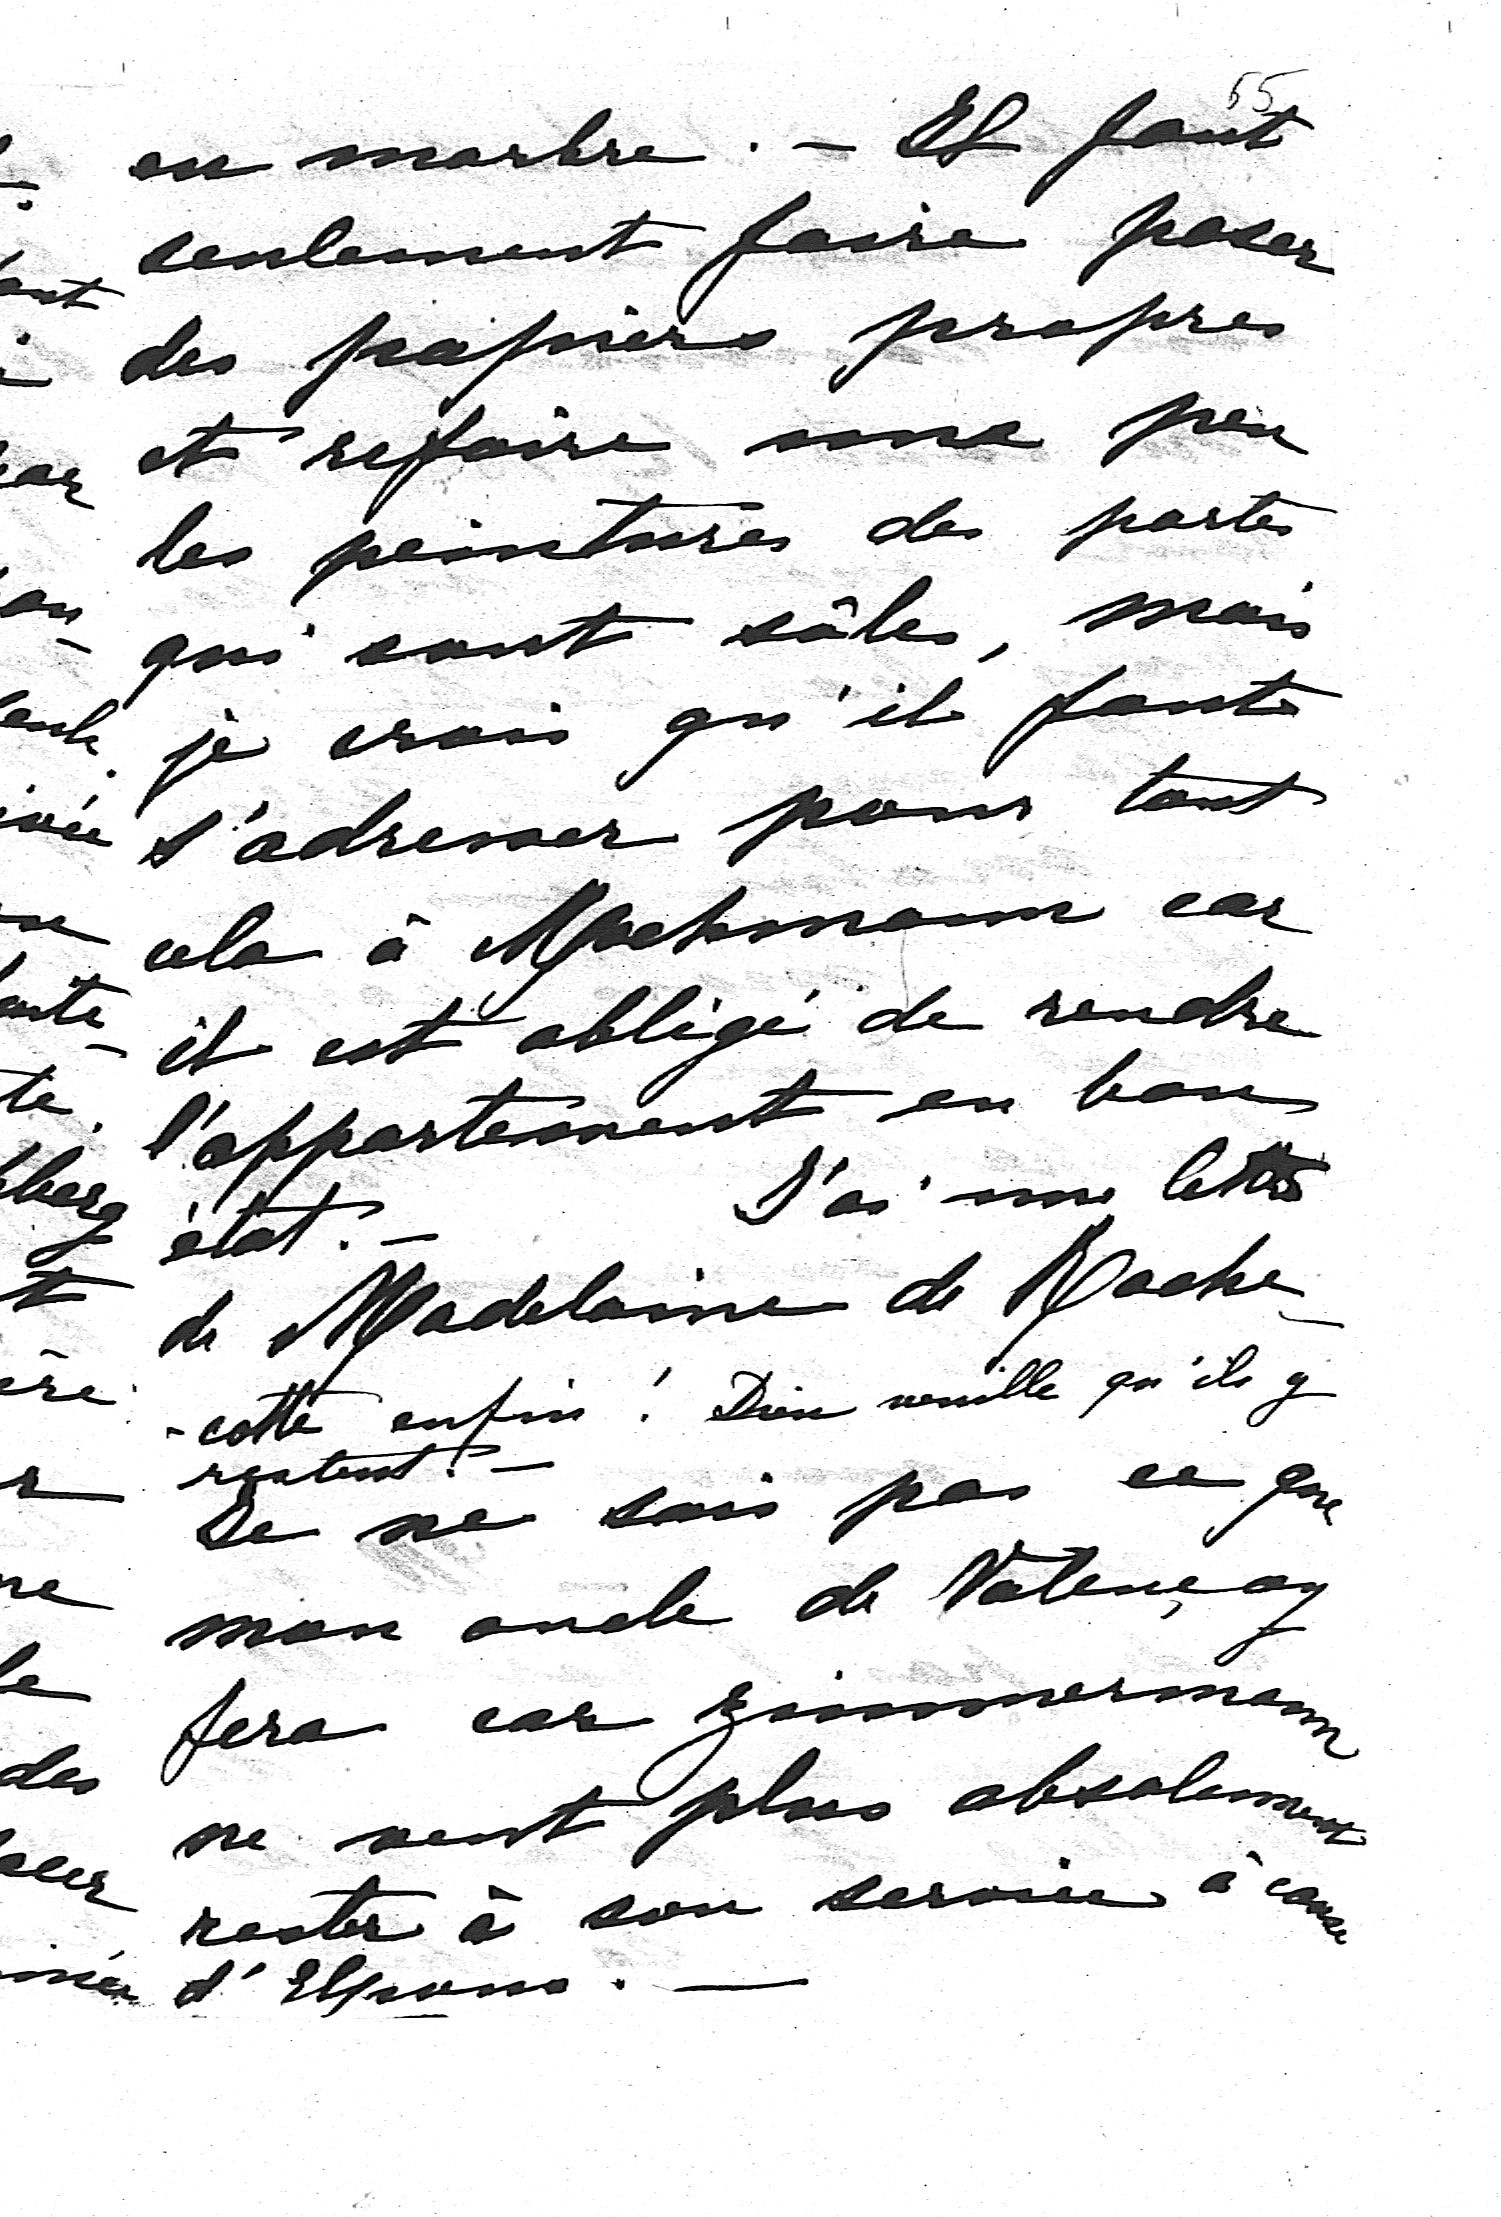 65
en marbre. — Il faut
seulement faire poser
des papiers propres
et refaire une peu
les peintures des portes
qui sont sâles, mais
je crois qu'il faut
s'adresser pour tout
cela à Mochmann car
il est obligé de rendre
l'appartement en bon
état. — J'ai une lettre
de Madelaine de Roche-
-cotte enfin! Dieu veuille qu'ils y
restent! —
Je ne sais pas ce que
mon oncle de Valençay
fera car Zimmermann
ne veut plus absolument
rester à son service à cause
d'